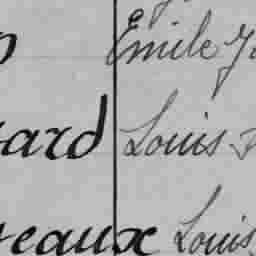 Emile
ard Louis
eaux Louis